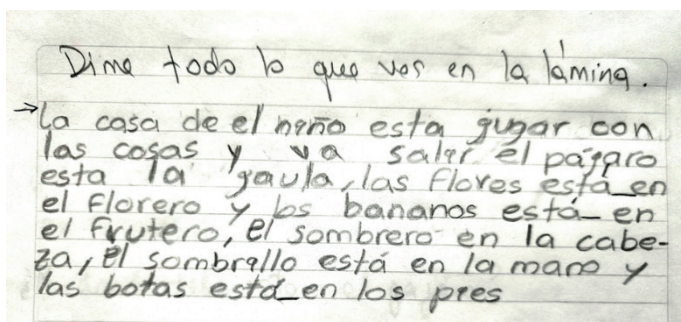 Dime todo lo que ves en la lámina.
→La casa de el niño esta jugar con
las cosas y va salir el pájaro
esta la jaula, las flores está_en
el florero y los bananos está_en
el frutero, el sombrero en la cabe-
za, el sombrallo está en la mano y
las botas está_en los pies